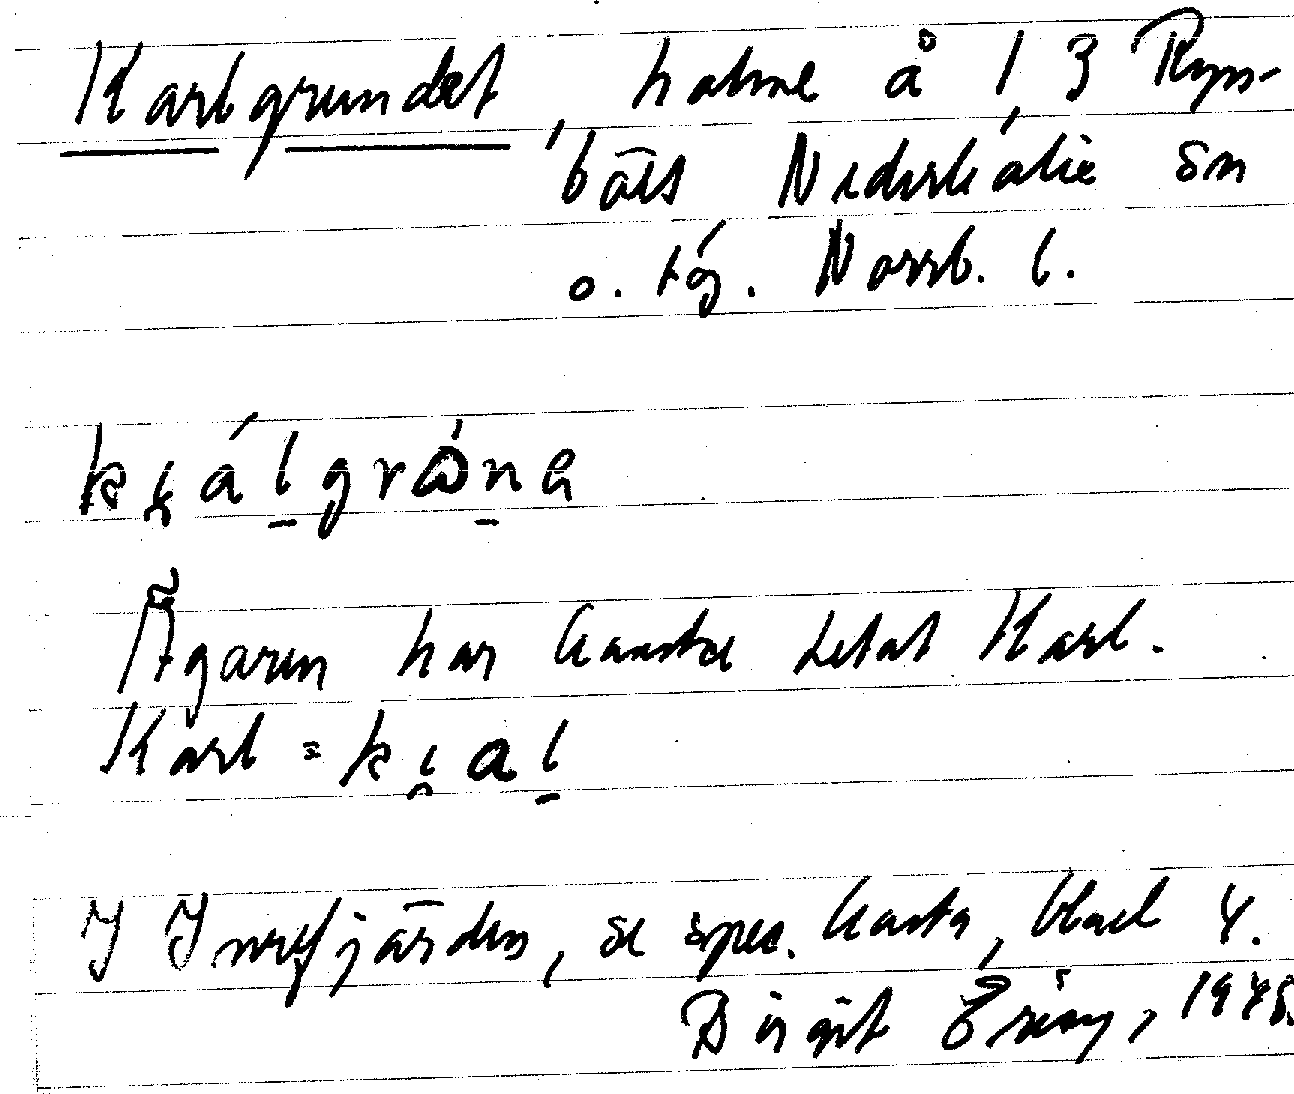 Karlgrundet, holme å 13 Ryss-
bält Nederkalix sn
o. tg. Norrb. l.
kjálgrȯna
Ägaren har kanske hetat Karl.
Karl = kjal
I Inrefjärden, se spec. karta, blad 4.
Birgit 1948.